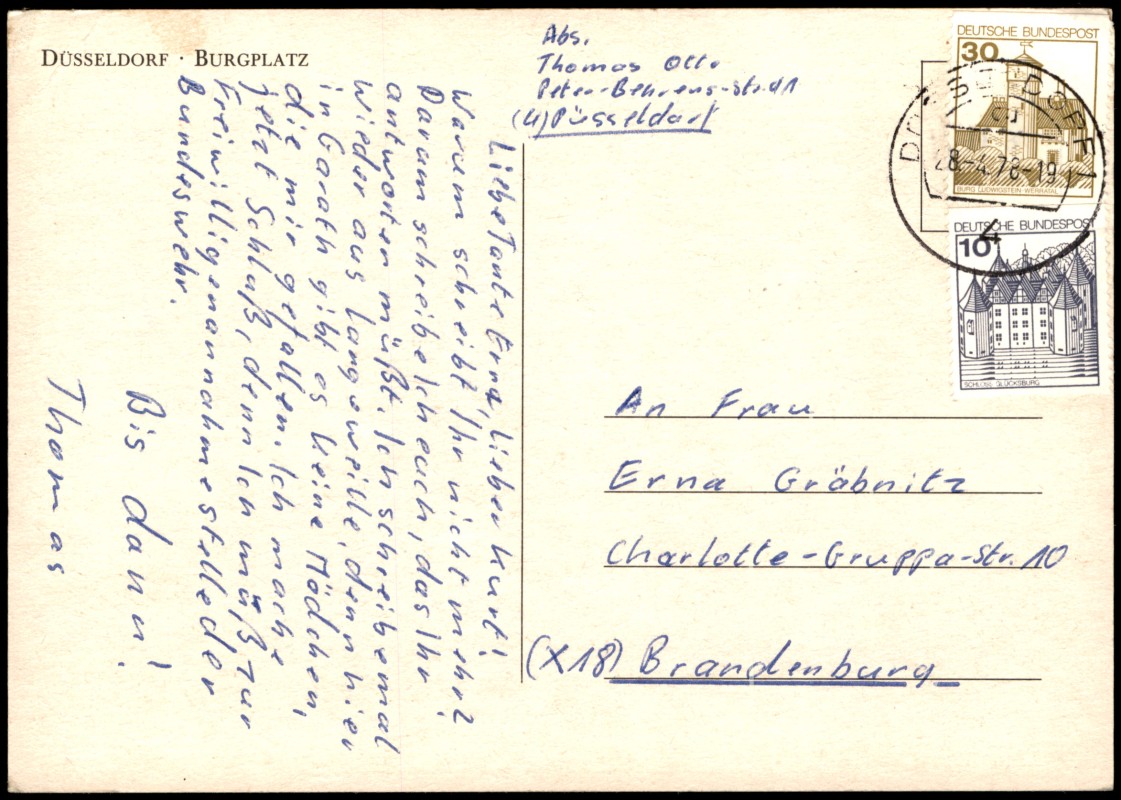 DÜSSELDORF · BURGPLATZ
Abs.
Thomas Otto
Peter-Behrens-Str. 41
(4) Düsseldorf
DEUTSCHE BUNDESPOST
30
BURG LUDWIGSTEIN WERRATAL
DEUTSCHE BUNDESPOST
10
SCHLOSS GLÜCKSBURG
DÜSSELDORF 1
28-4.78-19
4
Liebe Tante Erna, Lieber Kurt!
Warum schreibt Ihr nicht mehr?
Darum schreibe Ich euch, das Ihr
antworten müßt. Ich schreibe mal
wieder aus Langeweile, denn hier
in Garath gibt es keine Mädchen,
die mir gefallen. Ich mache
jetzt Schluß, denn Ich muß zur
Freiwilligenannahmestelle der
Bundeswehr.
Bis dann!
Thomas
An Frau
Erna Gräbnitz
Charlotte-Gruppa-Str. 10
(X18) Brandenburg